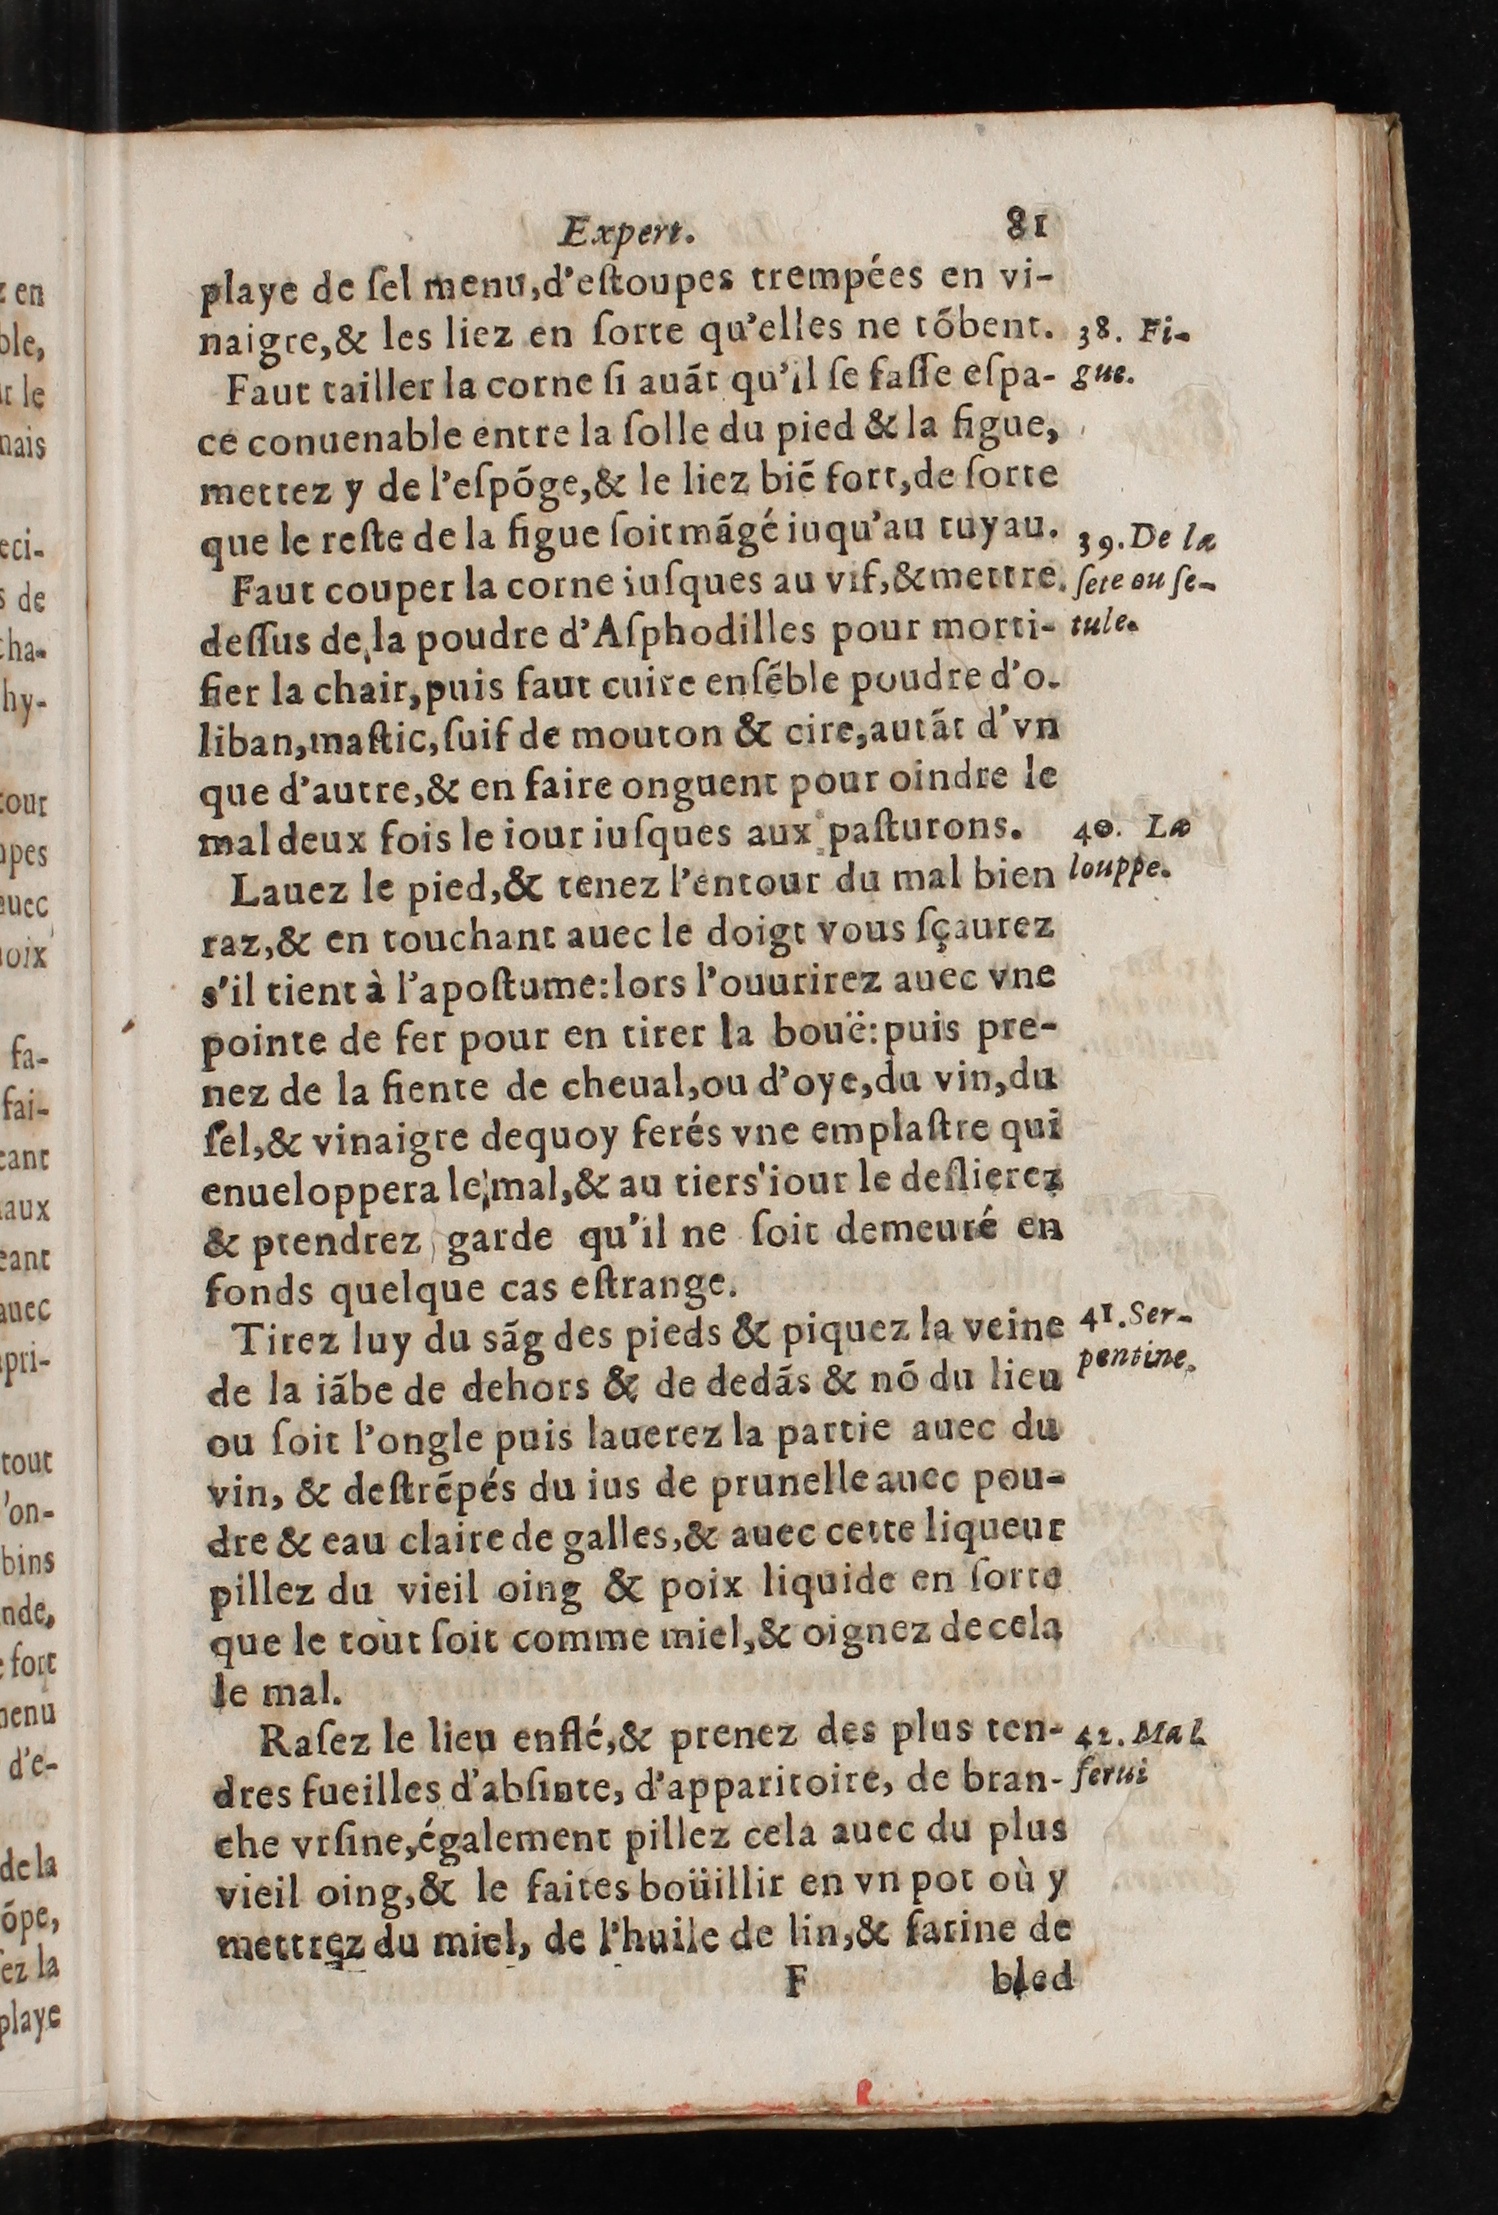 Expert. 81
playe de ſel menu,d'eſtoupes trempées en vi-
naigre,& les liez en ſorte qu'elles ne tõbent.
38. Fi-
gue.
Faut tailler la corne ſi auãt qu'il ſe faſſe eſpa-
ce conuenable entre la ſolle du pied & la figue,
mettez y de l'eſpõge,& le liez biẽ fort,de ſorte
que le reſte de la figue ſoit mãgé iuqu'au tuyau.
39. De la
ſete ou ſe-
tule.
Faut couper la corne iuſques au vif,& mettre
deſſus de la poudre d'Aſphodilles pour morti-
fier la chair,puis faut cuire enſẽble poudre d'o-
liban,maſtic,ſuif de mouton & cire,autãt d'vn
que d'autre,& en faire onguent pour oindre le
mal deux fois le iour iuſques aux paſturons.
40. La
louppe.
Lauez le pied,& tenez l'entour du mal bien
raz,& en touchant auec le doigt vous ſçaurez
s'il tient à l'apoſtume:lors l'ouurirez auec vne
pointe de fer pour en tirer la bouë:puis pre-
nez de la fiente de cheual,ou d'oye,du vin,du
ſel,& vinaigre dequoy ferés vne emplaſtre qui
enueloppera le mal,& au tiers iour le deſlierez
& prendrez garde qu'il ne ſoit demeuré en
fonds quelque cas eſtrange.
41. Ser-
pentine.
Tirez luy du sãg des pieds & piquez la veine
de la iãbe de dehors & de dedãs & nõ du lieu
ou ſoit l'ongle puis lauerez la partie auec du
vin, & deſtrẽpés du ius de prunelle auec pou-
dre & eau claire de galles,& auec cette liqueur
pillez du vieil oing & poix liquide en ſorte
que le tout ſoit comme miel,& oignez de cela
le mal.
42. Mal
ferui
Raſez le lieu enflé,& prenez des plus ten-
dres fueilles d'abſinte, d'apparitoire, de bran-
che vrſine,également pillez cela auec du plus
vieil oing,& le faites boüillir en vn pot où y
mettrez du miel, de l'huile de lin,& farine de
F bled